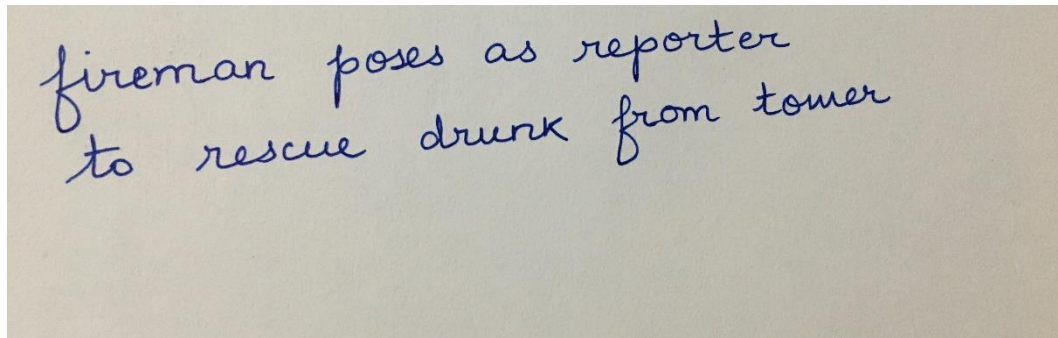 fireman poses as reporter
to rescue drunk from tower